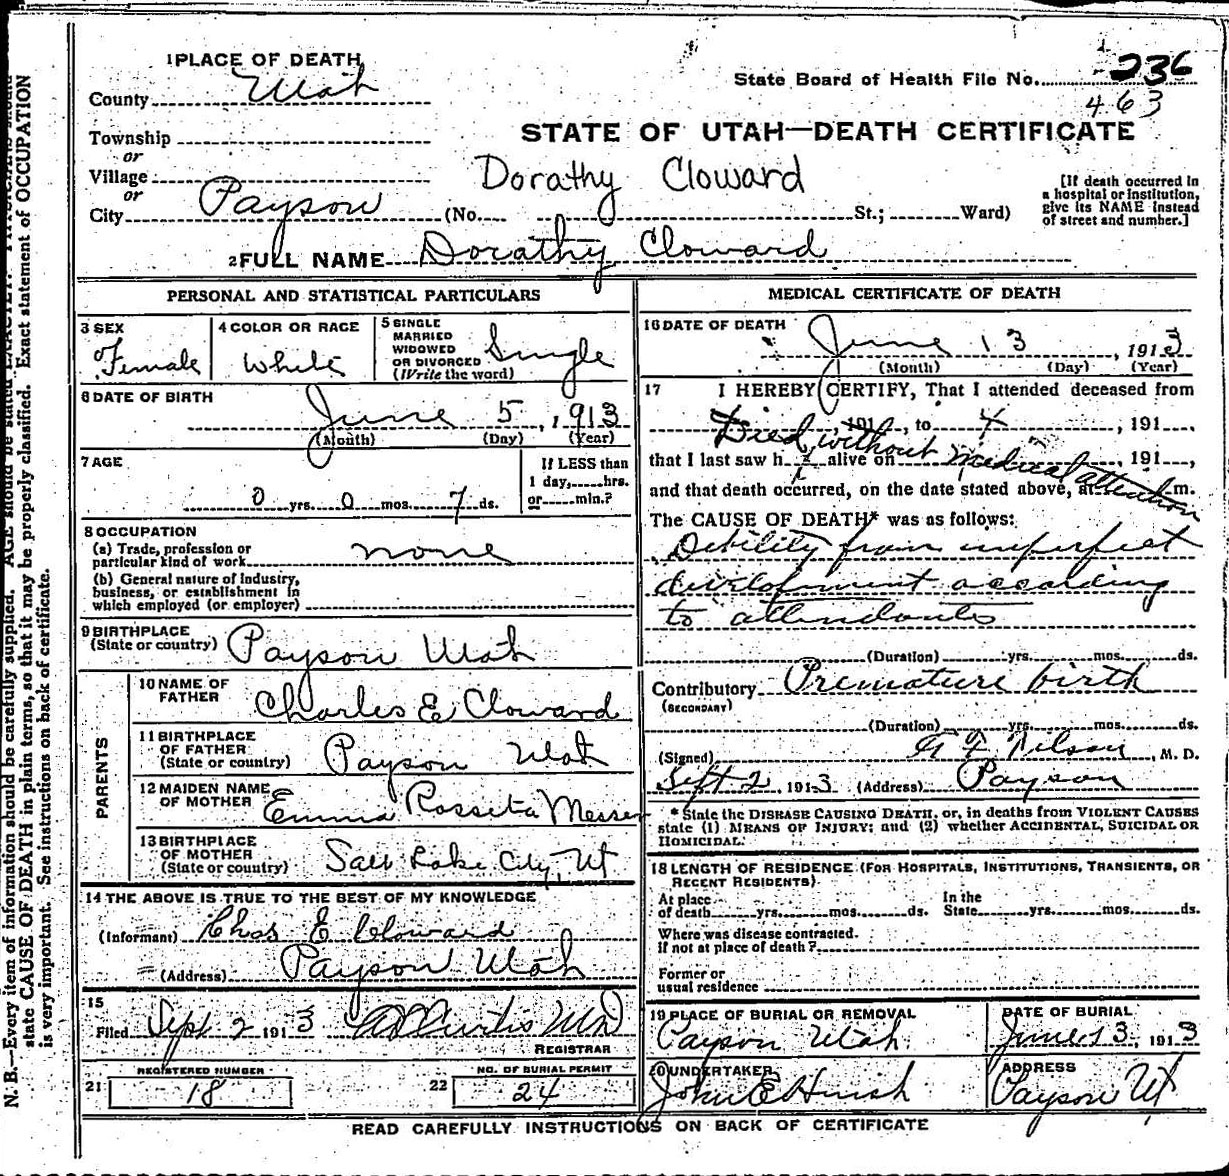 1 PLACE OF DEATH
County Utah
State Board of Health File No. 236
463
Township
or
Village
or
City Payson (No. St.; Ward)
STATE OF UTAH—DEATH CERTIFICATE
Dorathy Cloward
[If death occurred in
a hospital or institution,
give its NAME instead
of street and number.]
2 FULL NAME Dorathy Cloward
PERSONAL AND STATISTICAL PARTICULARS
3 SEX
Female
4 COLOR OR RACE
White
5 SINGLE
MARRIED
WIDOWED
OR DIVORCED
(Write the word)
Single
6 DATE OF BIRTH
June 5, 1913
(Month) (Day) (Year)
7 AGE
0 yrs. 0 mos. 7 ds.
If LESS than
1 day, hrs.
or min.?
8 OCCUPATION
(a) Trade, profession or
particular kind of work none
(b) General nature of industry,
business, or establishment in
which employed (or employer)
9 BIRTHPLACE
(State or country) Payson Utah
PARENTS
10 NAME OF
FATHER Charles E Cloward
11 BIRTHPLACE
OF FATHER
(State or country) Payson Utah
12 MAIDEN NAME
OF MOTHER Emma Rosseta Messer
13 BIRTHPLACE
OF MOTHER
(State or country) Salt Lake City, Ut
14 THE ABOVE IS TRUE TO THE BEST OF MY KNOWLEDGE
(Informant) Chas E Cloward
(Address) Payson Utah
15
Filed Sept 2 1913 Curtis MD
REGISTRAR
REGISTERED NUMBER
21 18
NO. OF BURIAL PERMIT
22 24
MEDICAL CERTIFICATE OF DEATH
16 DATE OF DEATH
June 13, 1913
(Month) (Day) (Year)
17 I HEREBY CERTIFY, That I attended deceased from
, 191 , to , 191 ,
Died without medical attention
that I last saw h alive on , 191 ,
and that death occurred, on the date stated above, at m.
The CAUSE OF DEATH* was as follows:
Debility from imperfect
development according
to attendants
(Duration) yrs. mos. ds.
Contributory Premature birth
(SECONDARY)
(Duration) yrs. mos. ds.
(Signed) Nilson, M. D.
Sept 2 1913 (Address) Payson
* State the DISEASE CAUSING DEATH, or, in deaths from VIOLENT CAUSES
state (1) MEANS OF INJURY; and (2) whether ACCIDENTAL, SUICIDAL OR
HOMICIDAL.
18 LENGTH OF RESIDENCE (FOR HOSPITALS, INSTITUTIONS, TRANSIENTS, OR
RECENT RESIDENTS)
At place
of death yrs. mos. ds.
In the
State yrs. mos. ds.
Where was disease contracted.
If not at place of death?
Former or
usual residence
19 PLACE OF BURIAL OR REMOVAL
Payson Utah
DATE OF BURIAL
June 13, 1913
20 UNDERTAKER
John E Huish
ADDRESS
Payson Ut
READ CAREFULLY INSTRUCTIONS ON BACK OF CERTIFICATE
N. B.—Every item of information should be carefully supplied. AGE should be stated EXACTLY. PHYSICIANS should
state CAUSE OF DEATH in plain terms, so that it may be properly classified. Exact statement of OCCUPATION
is very important. See instructions on back of certificate.